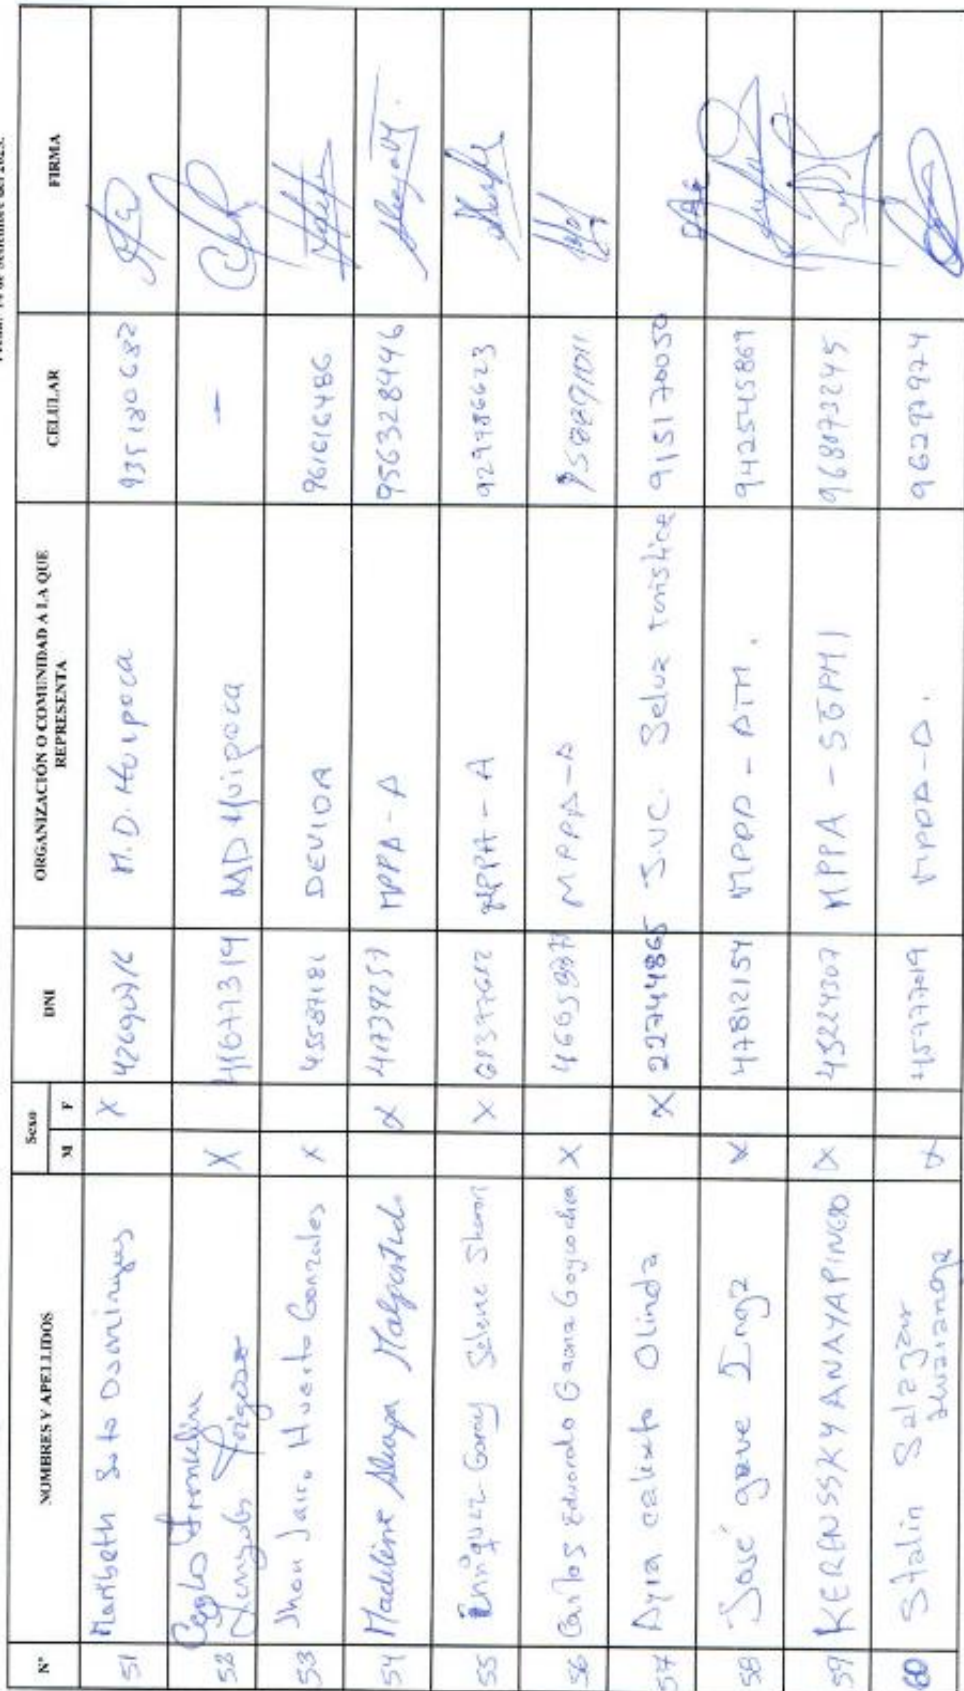 N° NOMBRES Y APELLIDOS Sexo DNI ORGANIZACIÓN O COMUNIDAD A LA QUE REPRESENTA CELULAR FIRMA
M F
51 Maribeth Soto Dominguez X M.D. Huipoca 935120682
52 X 41677314 MD Huipoca -
53 Jhon Jairo Huerto Gonzales X 45587181 DEVIDA 961616486
54 Madeleine X 41739257 MPPA - A 956328446
55 Enriquez Garay Selene X 61377612 MPPA - A 929786623
56 Carlos Eduardo Gaona Goycochea X MPPA-A
57 Ayra calixto Olinda X 22744865 J.V.C. Seluz turistica 915170050
58 José gave Inga X 47812154 MPPA - ATM. 942545869
59 KERENSSKY ANAYAPINGO X 45224307 MPPA - SGPMI 968073245
60 Stalin Salazar Huaranga X 45777019 MPPA-A. 962979274